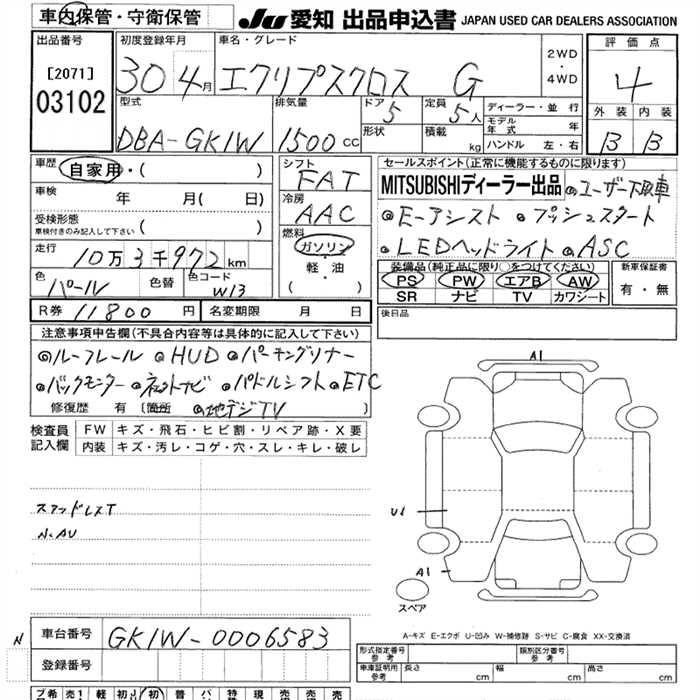 車内保管・守衛保管
JU 愛知 出品申込書 JAPAN USED CAR DEALERS ASSOCIATION
出品番号
[2071]
03102
初度登録年月
30 4月
車名・グレード
エクリプスクロス G
2WD
・
4WD
評価点
4
外装 内装
B B
型式
DBA-GK1W
排気量
1500cc
ドア
5
形状
定員
5人
積載
kg
ディーラー・並行
モデル年式 年
ハンドル 左・右
車歴
自家用・( )
車検
年 月( 日)
受検形態
車検付きのみ記入して下さい ( )
走行
10万3千972km
色
パール
色替
色コード
W13
R券 11800 円
名変期限 月 日
シフト
FAT
冷房
AAC
燃料
ガソリン
軽・油
( )
セールスポイント(正常に機能するものに限ります)
MITSUBISHIディーラー出品 ◎ユーザー下取車
◎E-アシスト ◎プッシュスタート
◎LEDヘッドライト ◎ASC
装備品(純正品に限り○をつけてください)
PS PW エアB AW
SR ナビ TV カワシート
新車保証書
有・無
後日品
注意事項申告欄(不具合内容等は具体的に記入して下さい)
◎ルーフレール ◎HUD ◎パーキングソナー
◎バックモニター ◎ネットナビ ◎パドルシフト ◎ETC
修復歴 有 (箇所 ◎地デジTV )
検査員記入欄
FW キズ・飛石・ヒビ割・リペア跡・X要
内装 キズ・汚レ・コゲ・穴・スレ・キレ・破レ
スタッドレスT
N-AU
A1
U1
A1
スペア
A-キズ E-エクボ U-凹み W-補修跡 S-サビ C-腐食 XX-交換済
N
車台番号 GK1W-0006583
登録番号
形式指定番号 参考
類別区分番号 参考
車庫証明用 参考
長さ cm 幅 cm 高さ cm